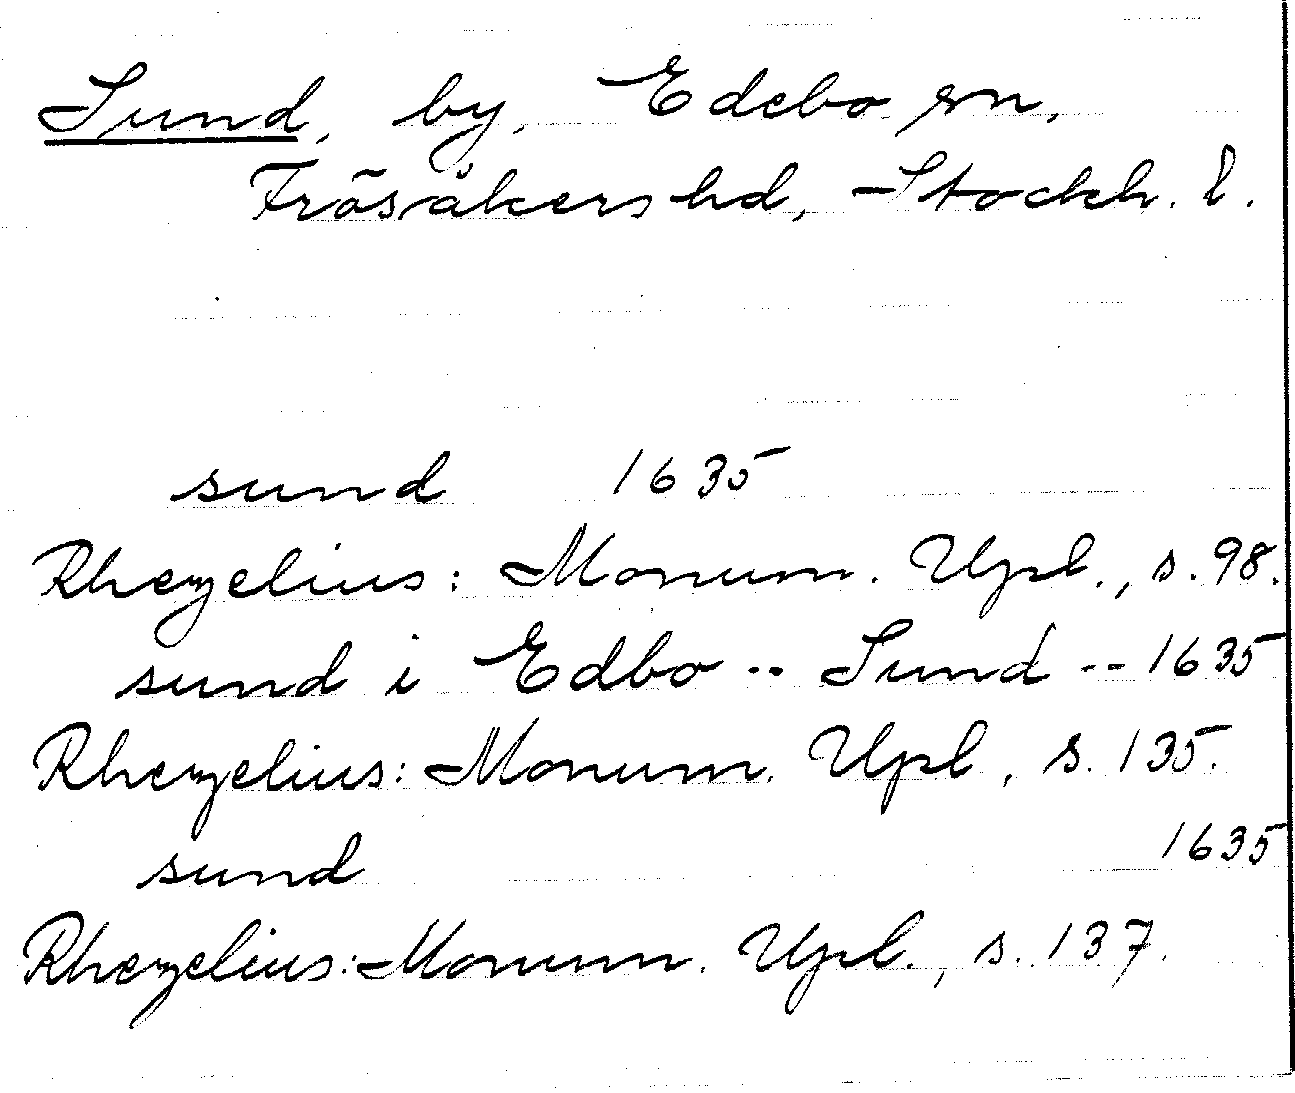 Sund, by, Edebo sn,
Frösåkers hd, Stockh. l.
sund 1635
Rhezelius: Monum. Upl., s. 98.
sund i Edbo -- Sund -- 1635
Rhezelius: Monum. Upl, s. 135.
sund 1635
Rhezelius: Monum. Upl., s. 137.